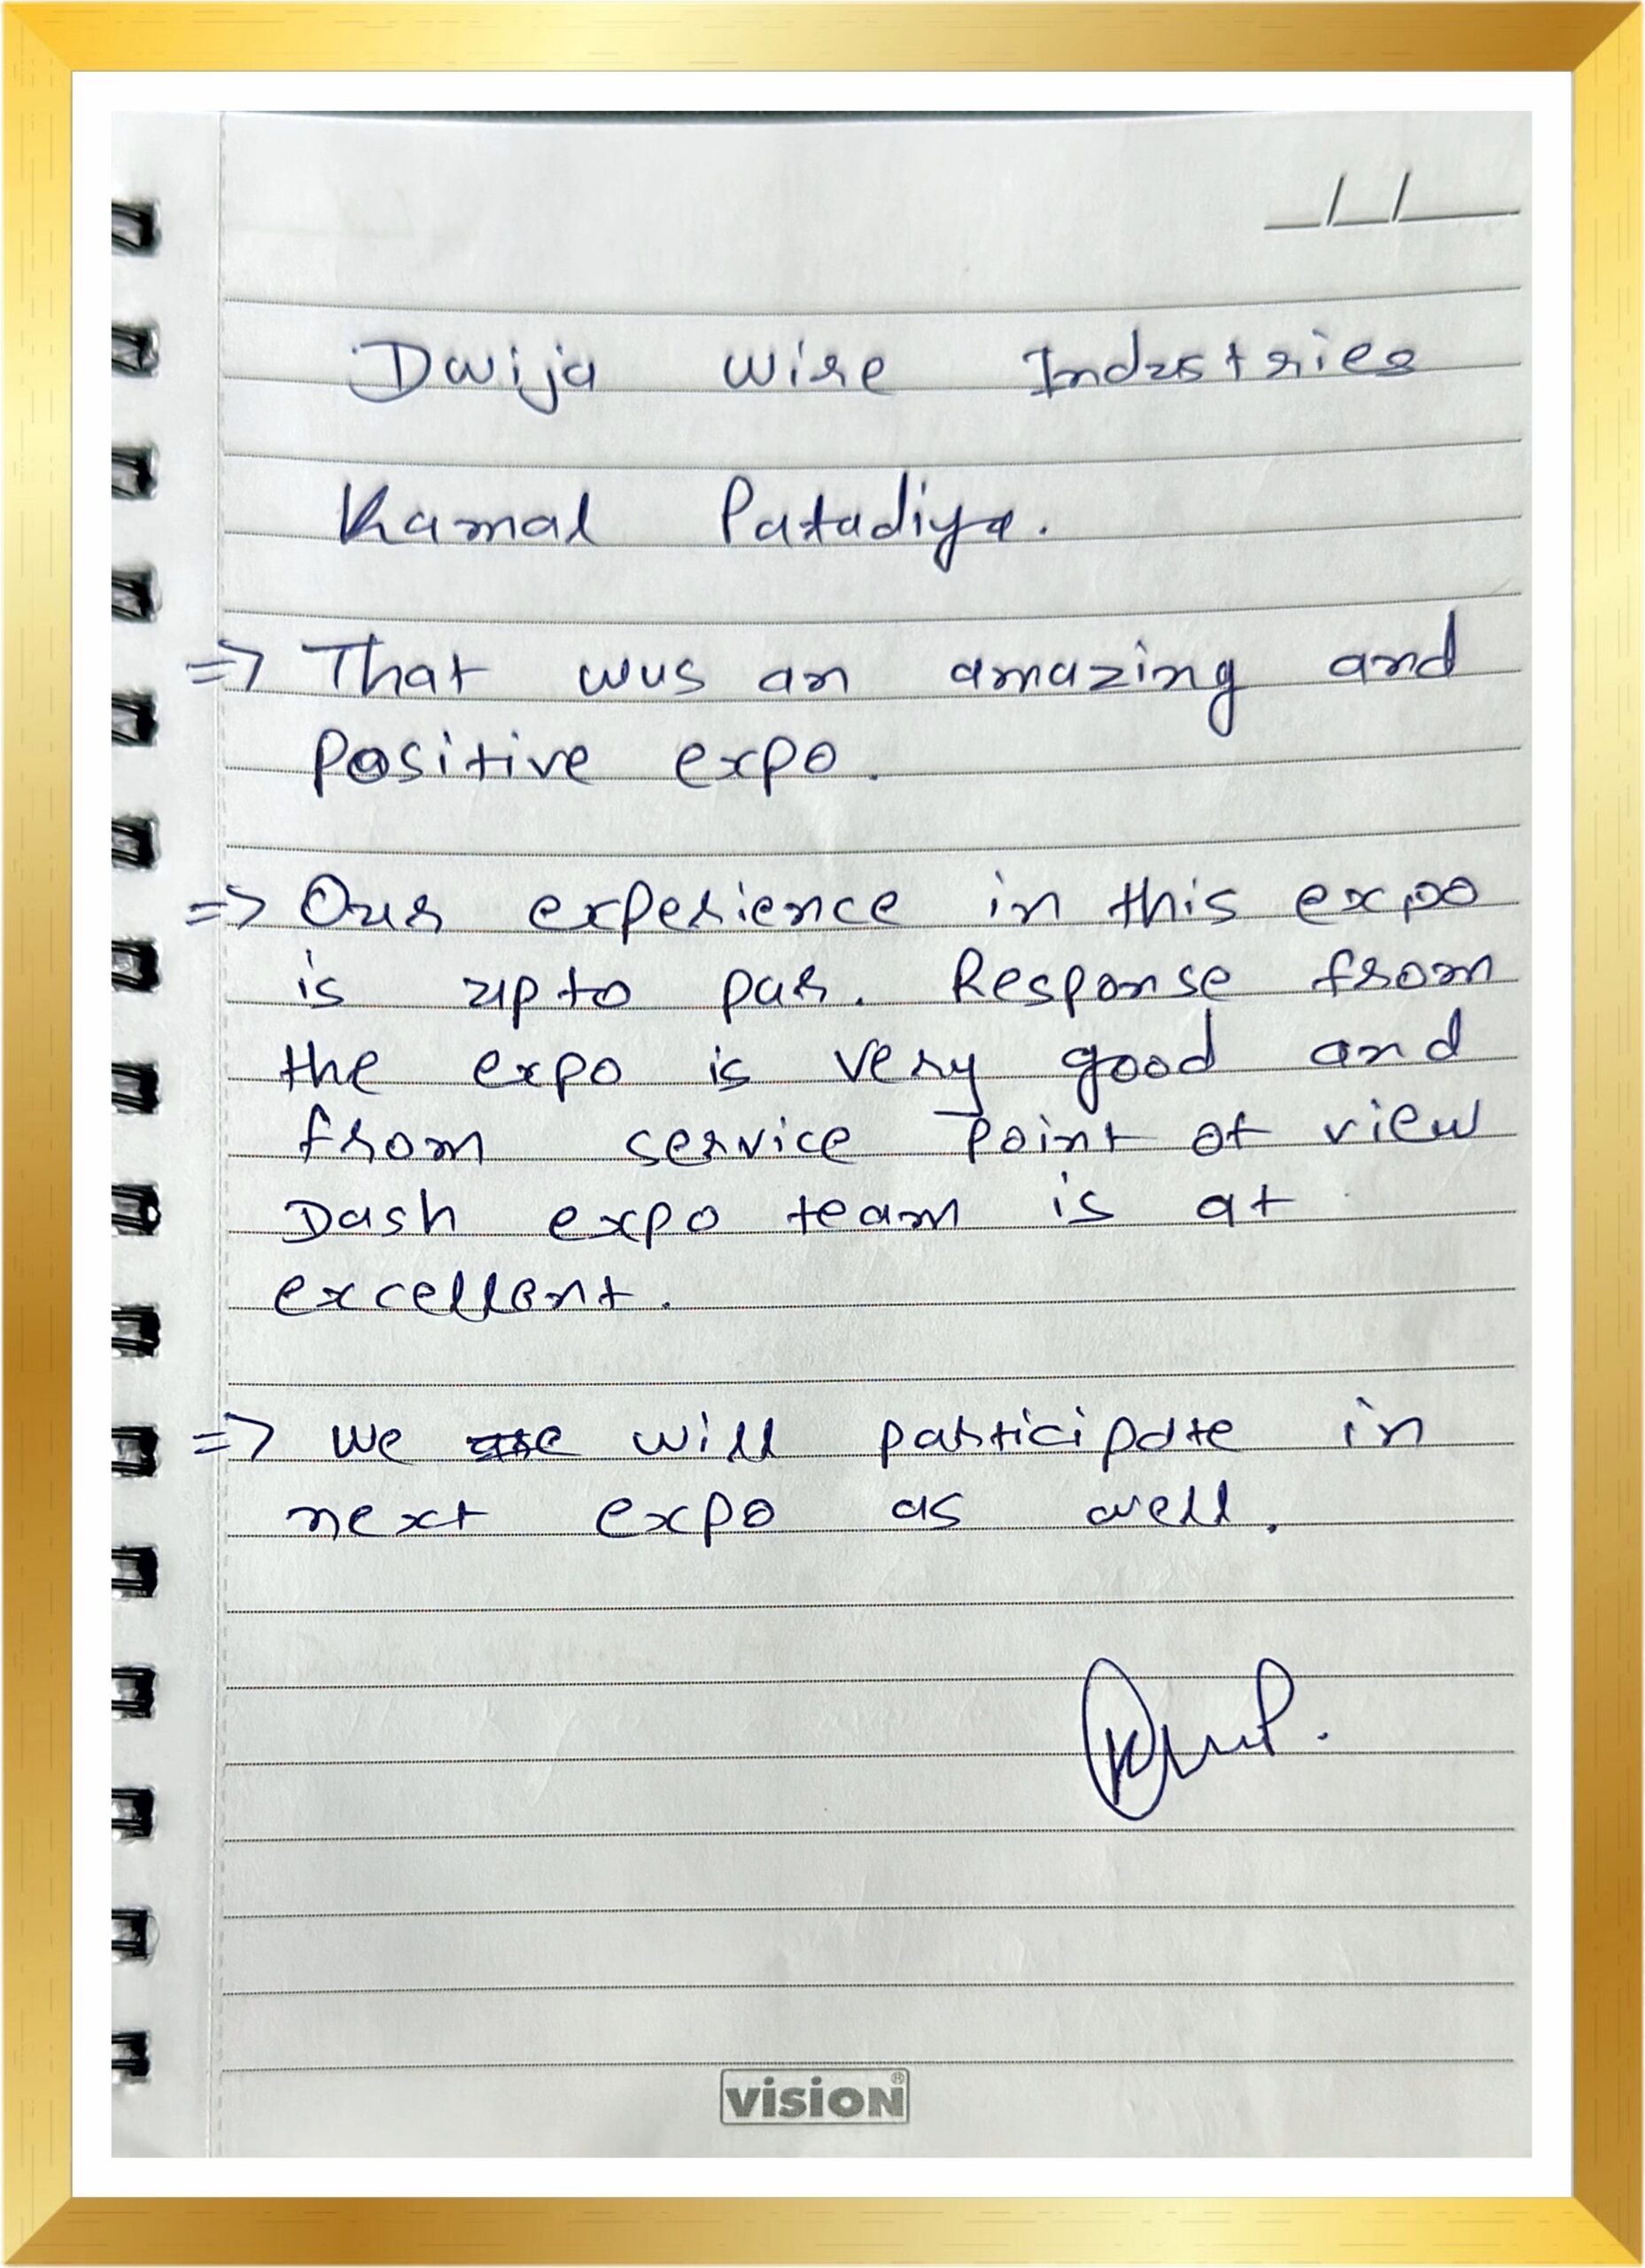 __/__/____
Dwija Wire Industries
Kamal Patadiya.
=> That was an amazing and
Positive expo.
=> Our experience in this expo
is upto par. Response from
the expo is very good and
from service point of view
Dash expo team is at
excellent.
=> We will participate in
next expo as well.
vision®